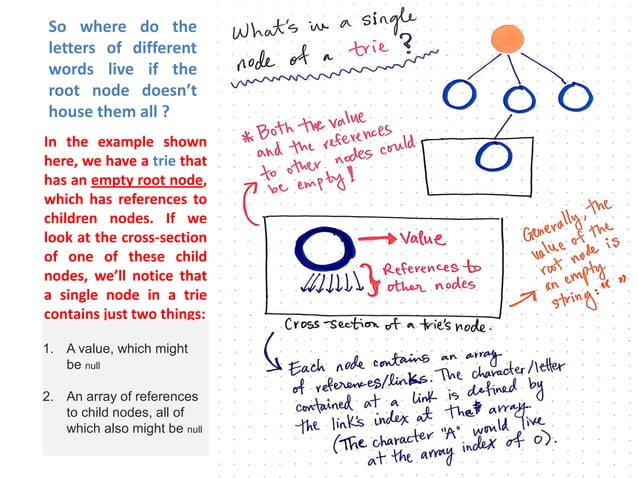 So where do the
letters of different
words live if the
root node doesn't
house them all ?
In the example shown
here, we have a trie that
has an empty root node,
which has references to
children nodes. If we
look at the cross-section
of one of these child
nodes, we'll notice that
a single node in a trie
contains just two things:
1. A value, which might
be null
2. An array of references
to child nodes, all of
which also might be null
What's in a single
node of a trie?
* Both the value
and the references
to other nodes could
be empty!
Value
References to
other nodes
Cross-section of a trie's node.
Generally, the
value of the
root node is
an empty
string: " "
Each node contains an array
of references/links. The character/letter
contained at a link is defined by
the link's index at the array
(The character "A" would live
at the array index of 0).